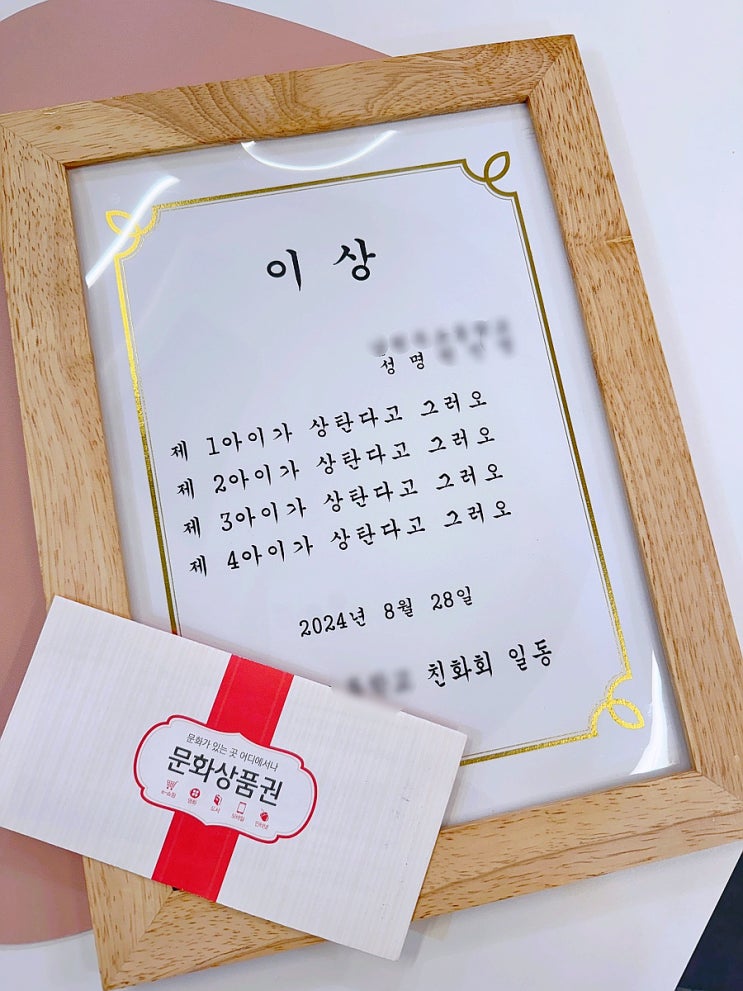 이 상
성 명
제 1아이가 상탄다고 그러오
제 2아이가 상탄다고 그러오
제 3아이가 상탄다고 그러오
제 4아이가 상탄다고 그러오
2024년 8월 28일
친화회 일동
문화가 있는 곳 어디에서나
문화상품권
e-쇼핑 영화 도서 모바일 인터넷